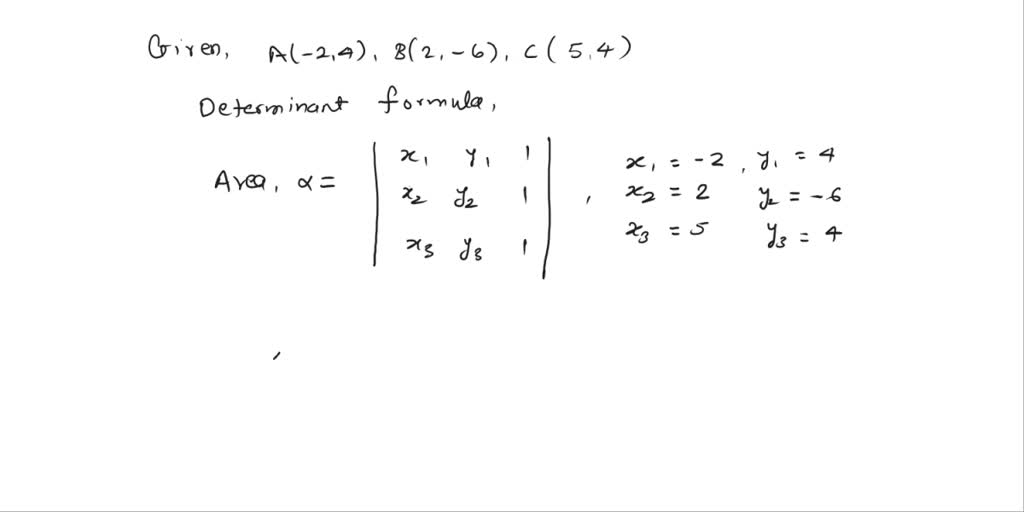 Given, A(-2,4), B(2,-6), C(5,4)
Determinant formula,
Area, α = | x₁ y₁ 1 |
| x₂ y₂ 1 |
| x₃ y₃ 1 | ,
x₁ = -2, y₁ = 4
x₂ = 2 y₂ = -6
x₃ = 5 y₃ = 4